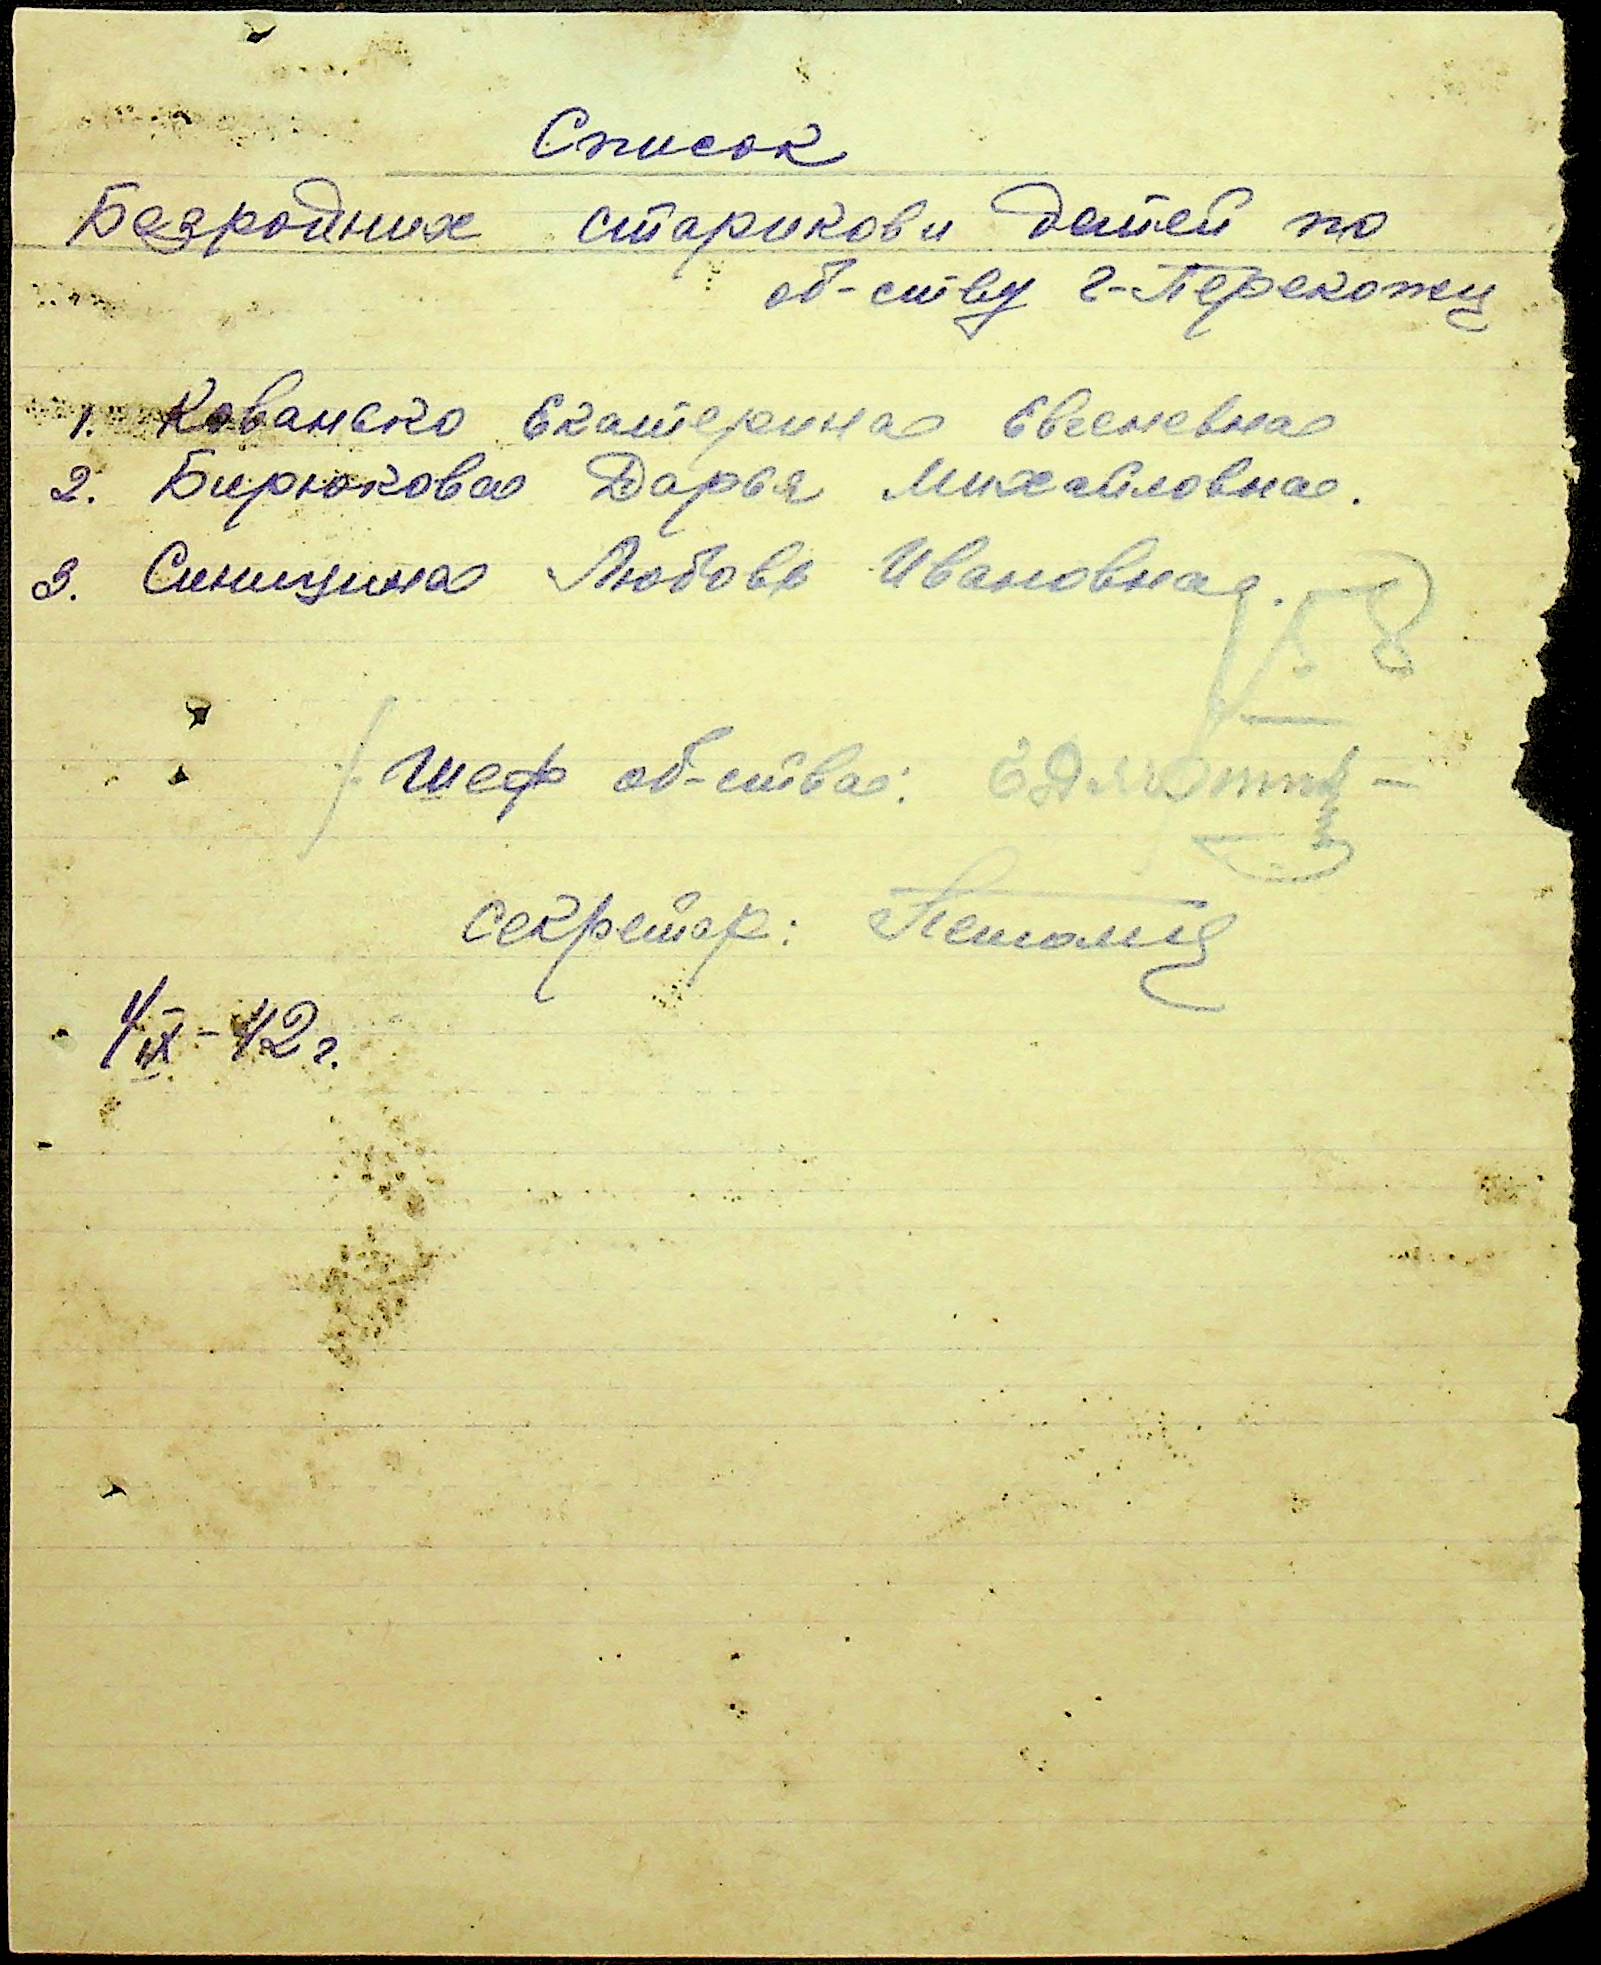 Список
Безродних стариков и детей по
об-ству г-Перекопу
1. Кованько Екатерина Евгеневна
2. Бирюкова Дарья Михайловна.
3. Синицина Любовь Ивановна.
Шеф об-ства:
секретар:
4/IX-42 г.